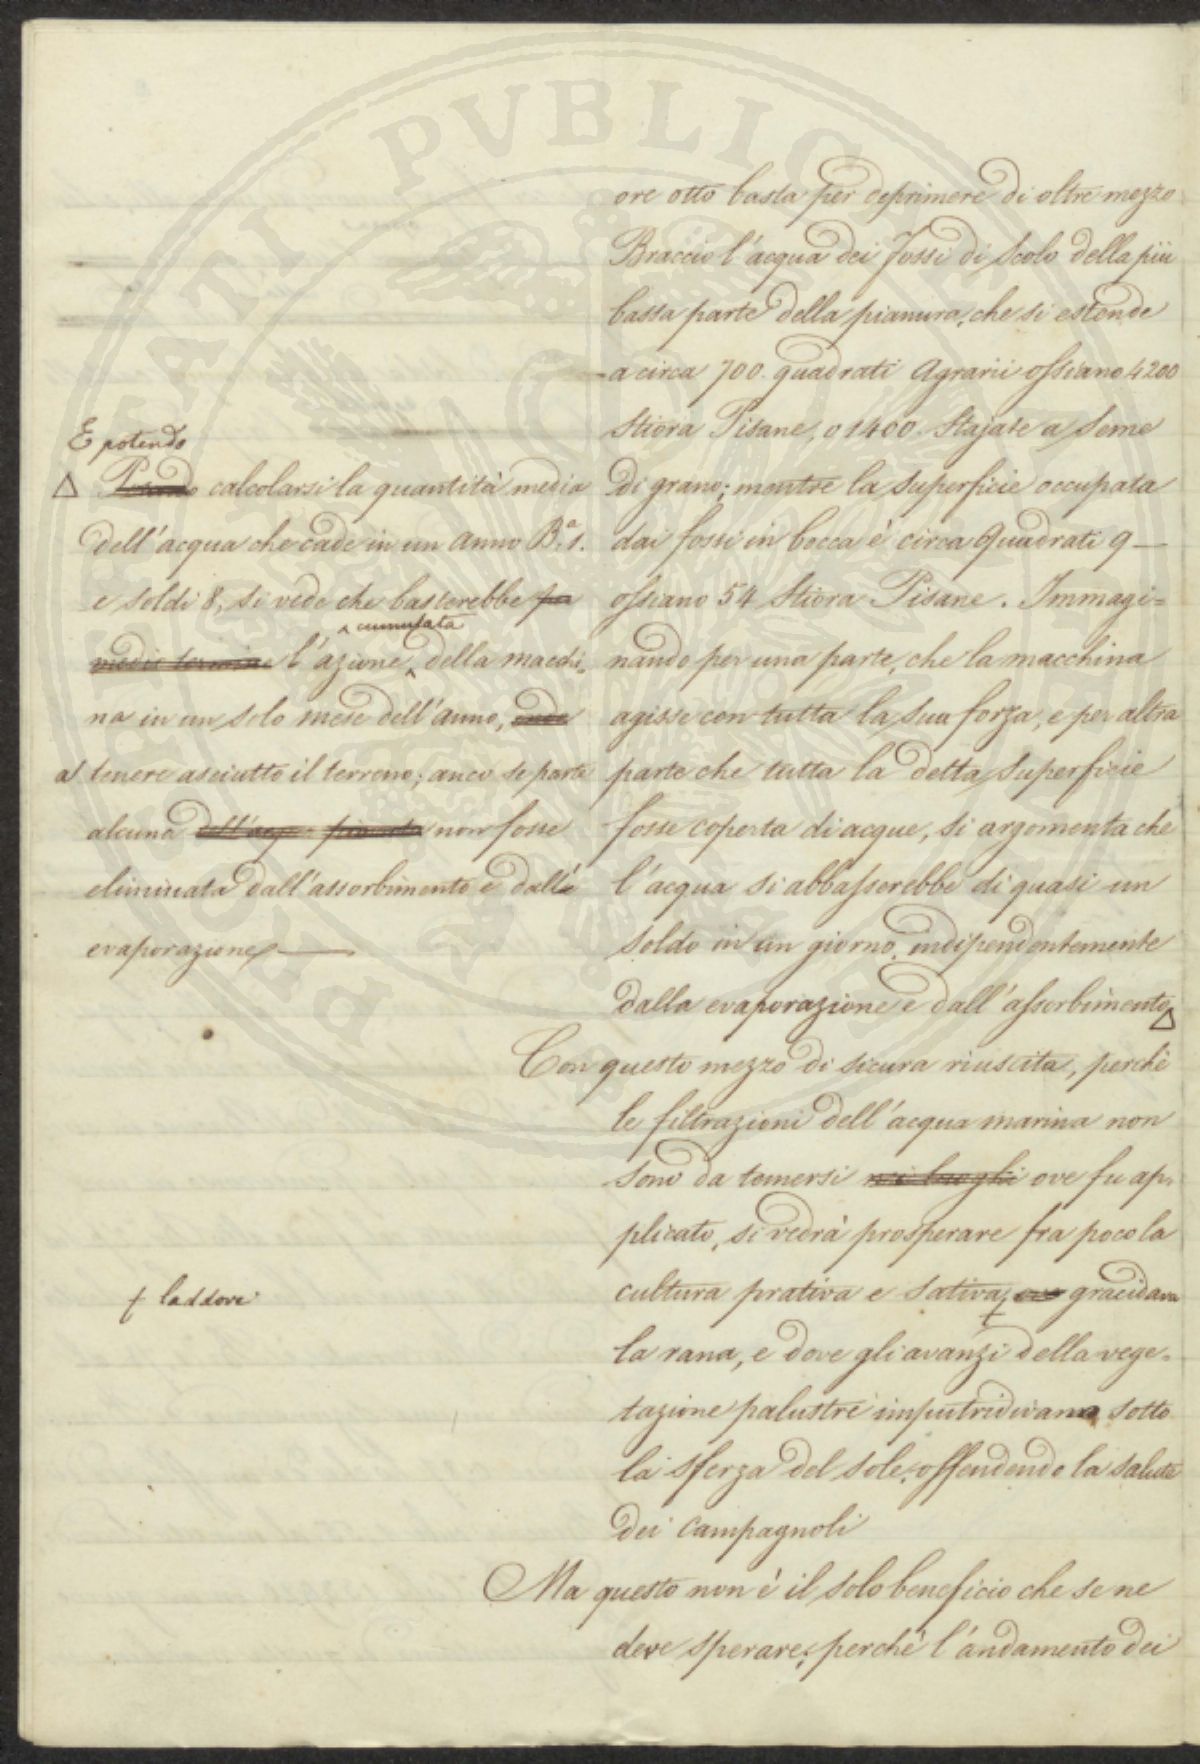 ore otto basta per deprimere di oltre mezzo
Braccio l'acqua dei Fossi di Scolo della più
bassa parte della pianura, che si estende
a circa 700. quadrati Agrarii ossiano 4200
Stiora Pisane, o 1400. Stajate a Seme
di grano; mentre la superficie occupata
dai fossi in bocca è circa Quadrati 9 —
ossiano 54 Stiora Pisane. Immagi=
nando per una parte, che la macchina
agisse con tutta la sua forza, e per altra
parte che tutta la detta superficie
fosse coperta di acque, si argomenta che
l'acqua si abbasserebbe di quasi un
soldo in un giorno, indipendentemente
dalla evaporazione e dall'assorbimento △
Con questo mezzo di sicura riuscita, perchè
le filtrazioni dell'acqua marina non
sono da temersi nei luoghi ove fu ap=
plicato, si vedrà prosperare fra poco la
cultura prativa e sativa, ove gracidava
la rana, e dove gli avanzi della vege=
tazione palustre imputridivano sotto
la sferza del sole, offendendo la salute
dei Campagnoli
Ma questo non è il solo beneficio che se ne
deve sperare; perchè l'andamento dei
E potendo
△ calcolarsi la quantità media
dell'acqua che cade in un anno B.a 1.
e soldi 8, si vede che basterebbe pa
cumulata
medio termine l'azione, della macchi=
na in un solo mese dell'anno, onde
a tenere asciutto il terreno; anco se parte
alcuna dell'acqua non fosse
eliminata dall'assorbimento e dalla
evaporazione —
+ laddove
PROBITATI PUBLICAE